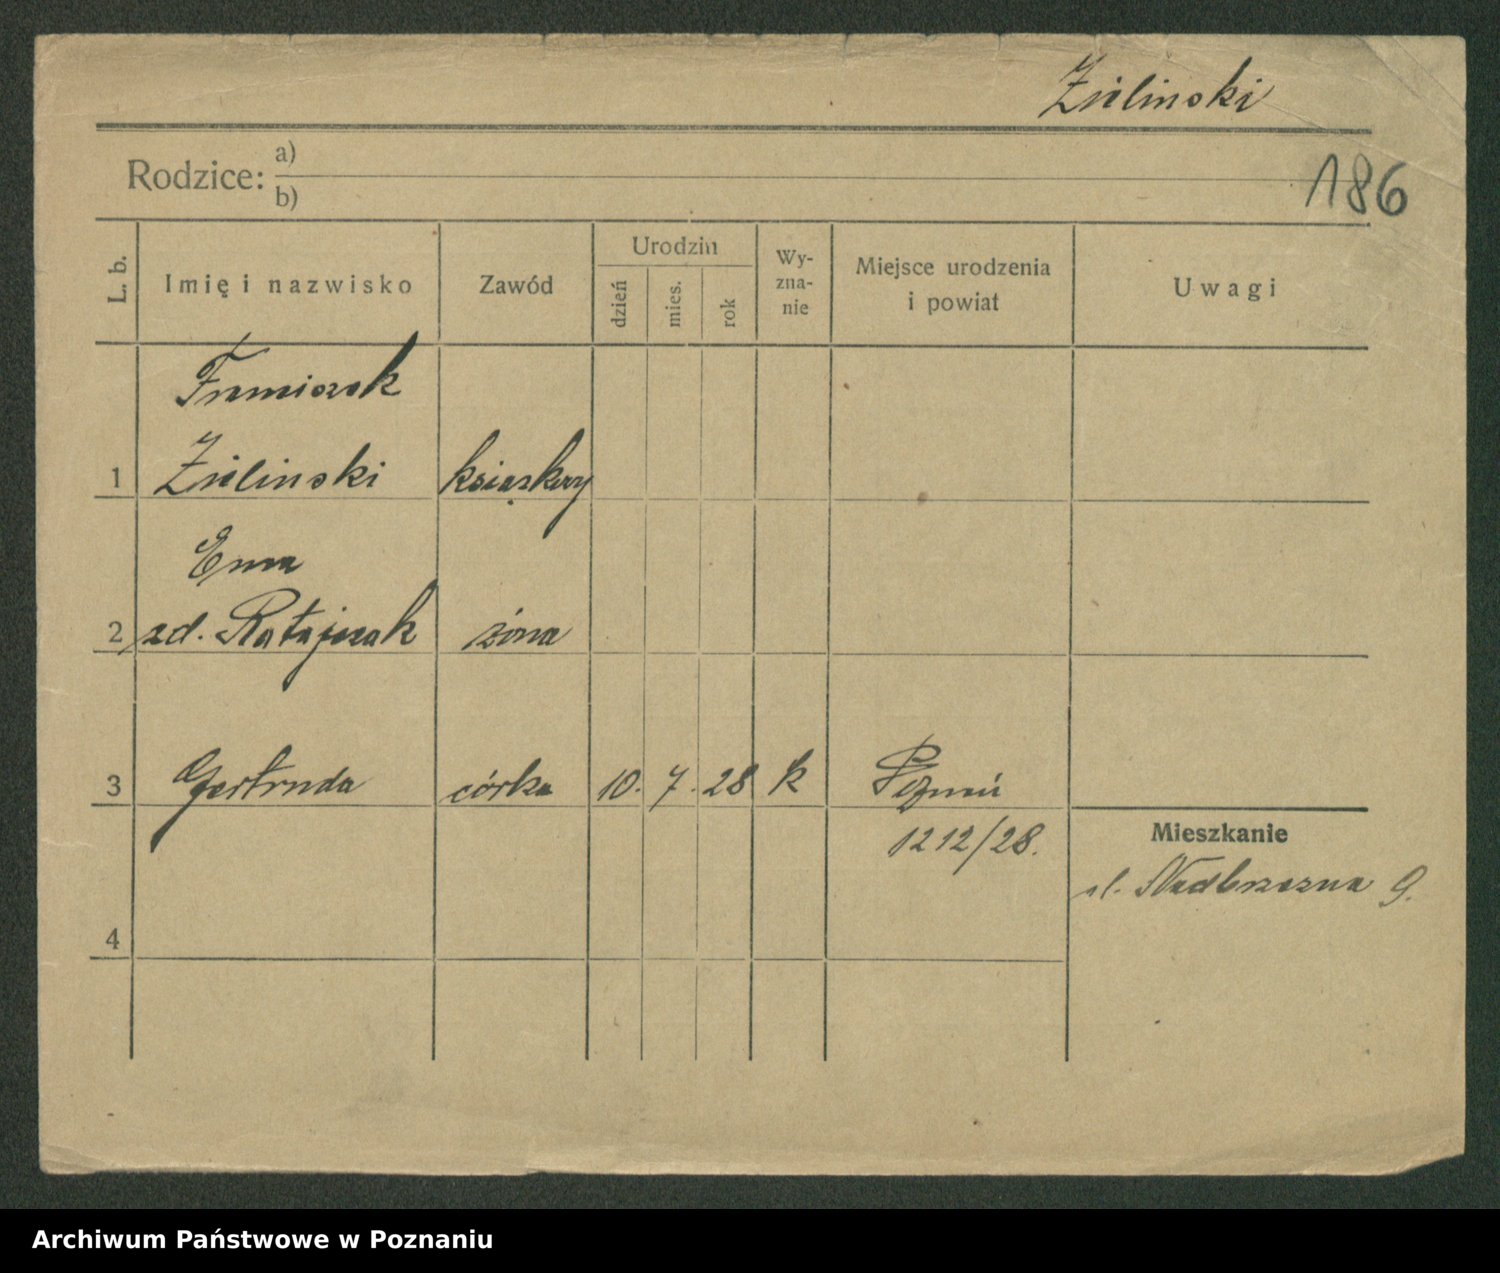 Zieliński
186
Rodzice: a)
b)
L. b.
Imię i nazwisko
Zawód
Urodzin
dzień
mies.
rok
Wy-
zna-
nie
Miejsce urodzenia
i powiat
Uwagi
Franciszek
1 Zieliński
2 zd. Ratajczak żona
3 Gertruda córka 10. 7. 28 k Poznań
1212/28.
Mieszkanie
ul. Nadbrzeżna 9.
4
Archiwum Państwowe w Poznaniu